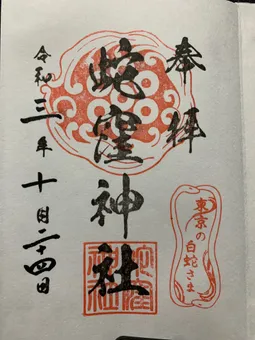 奉拝
蛇窪神社
令和三年十月二十四日
東京の
白蛇さま
蛇窪神社